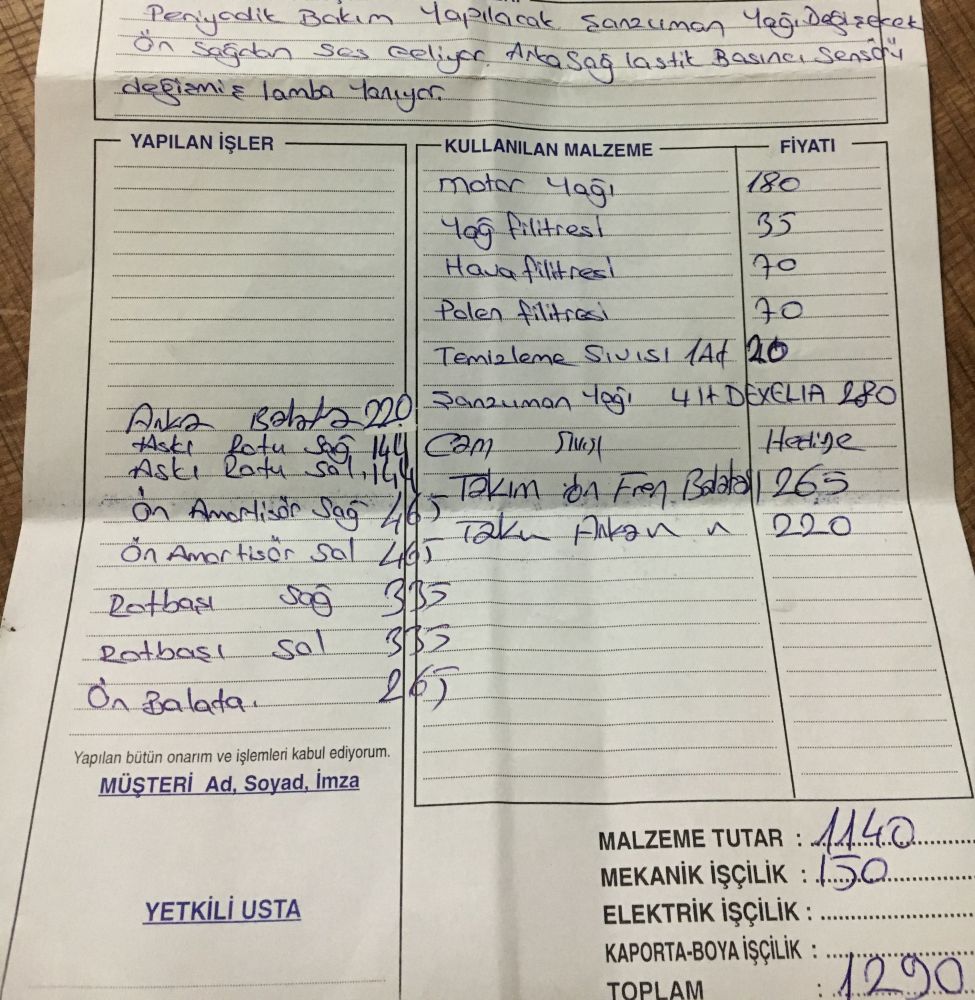 Periyodik Bakım Yapılacak Şanzuman Yağı Değişecek
Ön Sağdan Ses Geliyor Arka Sağ lastik Basıncı Sensörü
değişmiş lamba Yanıyor.
YAPILAN İŞLER
Arka Balata 220
Askı Rotu Sağ 144
Askı Rotu Sol 144
Ön Amortisör Sağ 465
Ön Amortisör Sol 465
Rotbaşı Sağ 335
Rotbaşı Sol 335
Ön Balata. 265
Yapılan bütün onarım ve işlemleri kabul ediyorum.
MÜŞTERİ Ad, Soyad, İmza
YETKİLİ USTA
KULLANILAN MALZEME FİYATI
Motor Yağı 180
Yağ filitresi 35
Hava filitresi 70
Polen filitresi 70
Temizleme Sıvısı 1Ad 20
Şanzuman Yağı 4 lt DEXELIA 280
Cam Sıvısı Hediye
Takım ön Fren Balatası 265
Takım Arka n n 220
MALZEME TUTAR : 1140
MEKANİK İŞÇİLİK : 150
ELEKTRİK İŞÇİLİK :
KAPORTA-BOYA İŞÇİLİK :
TOPLAM : 1290